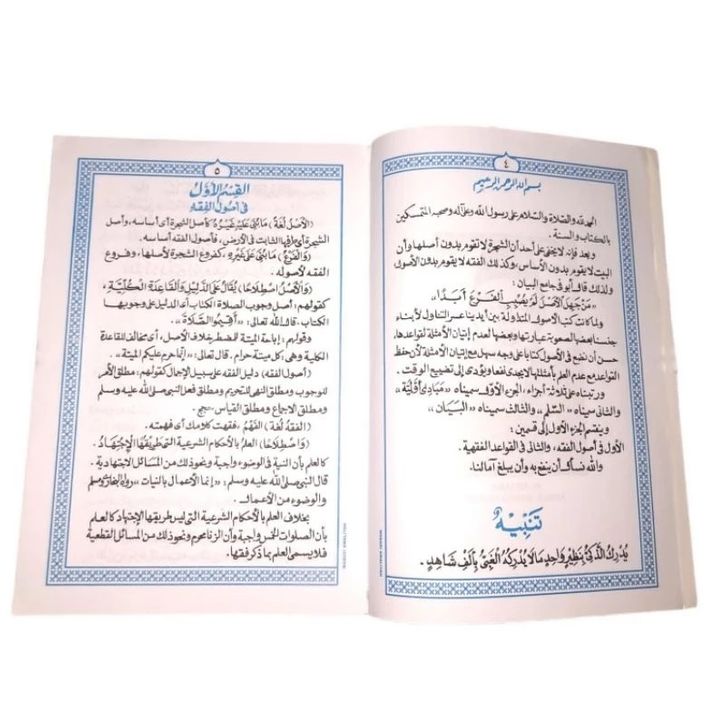 ٤
بسم الله الرحمن الرحيم
الحمد لله والصلاة والسلام على رسول الله وعلى آله وصحبه المتمسكين
بالكتاب والسنة .
وبعد فإنه لا يخفى على أحد أن الشجرة لا تقوم بدون أصلها وأن
البيت لا يقوم بدون الأساس، وكذلك الفقه لا يقوم بدون الأصول
ولذلك قال أبو في جامع البيان :
„ مَنْ جَهِلَ الْأَصْلَ لَمْ يُصِبِ الْفَرْعَ أَبَدًا „
ولما كانت كتب الأصول المتداولة بين أيدينا عسر التناول لأبناء
جنسنا بعضها لصعوبة عبارتها وبعضها لعدم إتيان الأمثلة لقواعدها،
حسن أن نضع في الأصول كتابا على وجه سهل مع إتيان الأمثلة لأن حفظ
القواعد مع عدم العلم بأمثالها لا يجدى نفعا ويؤدى إلى تضييع الوقت .
ورتبناه على ثلاثة أجزاء ، الجزء الأول سميناه „مَبَادِئ أَوَّلِيَّة„
والثانى سميناه „السُّلَّم„ والثالث سميناه „الْبَيَان„
وينقسم الجزء الأول إلى قسمين :
الأول في أصول الفقه ، والثانى في القواعد الفقهية .
والله نسأل أن ينفع به وأن يبلغ آمالنا .
تَنْبِيْهٌ
يُدْرِكُ الذَّكِيُّ بِنَظِيْرٍ وَاحِدٍ مَا لَا يُدْرِكُهُ الْغَبِيُّ بِأَلْفِ شَاهِدٍ .
٥
القِسْمُ الْأَوَّلُ
فِى أُصُولِ الْفِقْهِ
(الْأَصْلُ لُغَةً) مَا بُنِىَ عَلَيْهِ غَيْرُهُ كأصل الشجرة أى أساسه ، وأصل
الشجرة أى طرفها الثابت في الأرض ، فأصول الفقه أساسه .
(وَالْفَرْعُ) مَا بُنِىَ عَلَى غَيْرِهِ ، كفروع الشجرة لأصلها ، وفروع
الفقه لأصوله .
(وَالْأَصْلُ اصْطِلَاحًا) يُقَالُ عَلَى الدَّلِيْلِ وَالْقَاعِدَةِ الْكُلِّيَّةِ ،
كقولهم : أصل وجوب الصلاة الكتاب أى الدليل على وجوبها
الكتاب . قال الله تعالى : „أَقِيْمُوا الصَّلَاةَ„ .
وقولهم : إباحة الميتة للمضطر خلاف الأصل ، أى مخالف للقاعدة
الكلية وهى ، كل ميتة حرام . قال تعالى : „إنما حرم عليكم الميتة„ .
(أصول الفقه) دليل الفقه على سبيل الإجمال كقولهم : مطلق الأمر
للوجوب ومطلق النهى للتحريم ومطلق فعل النبى صلى الله عليه وسلم
ومطلق الاجماع ومطلق القياس حجج .
(الفقه لغة) الْفَهْمُ ، ففقهت كلامك أى فهمته .
(وَاصْطِلَاحًا) العلم بالأحكام الشرعية التى طريقها الإجتهاد .
كالعلم بأن النية في الوضوء واجبة ونحو ذلك من المسائل الاجتهادية .
قال النبى صلى الله عليه وسلم : „إنما الأعمال بالنيات„ رواه البخارى ومسلم
والوضوء من الأعمال .
بخلاف العلم بالأحكام الشرعية التى ليس طريقها الإجتهاد كالعلم
بأن الصلوات الخمس واجبة وأن الزنا محرم ونحو ذلك من المسائل القطعية
فلا يسمى العلم بما ذكر فقها .